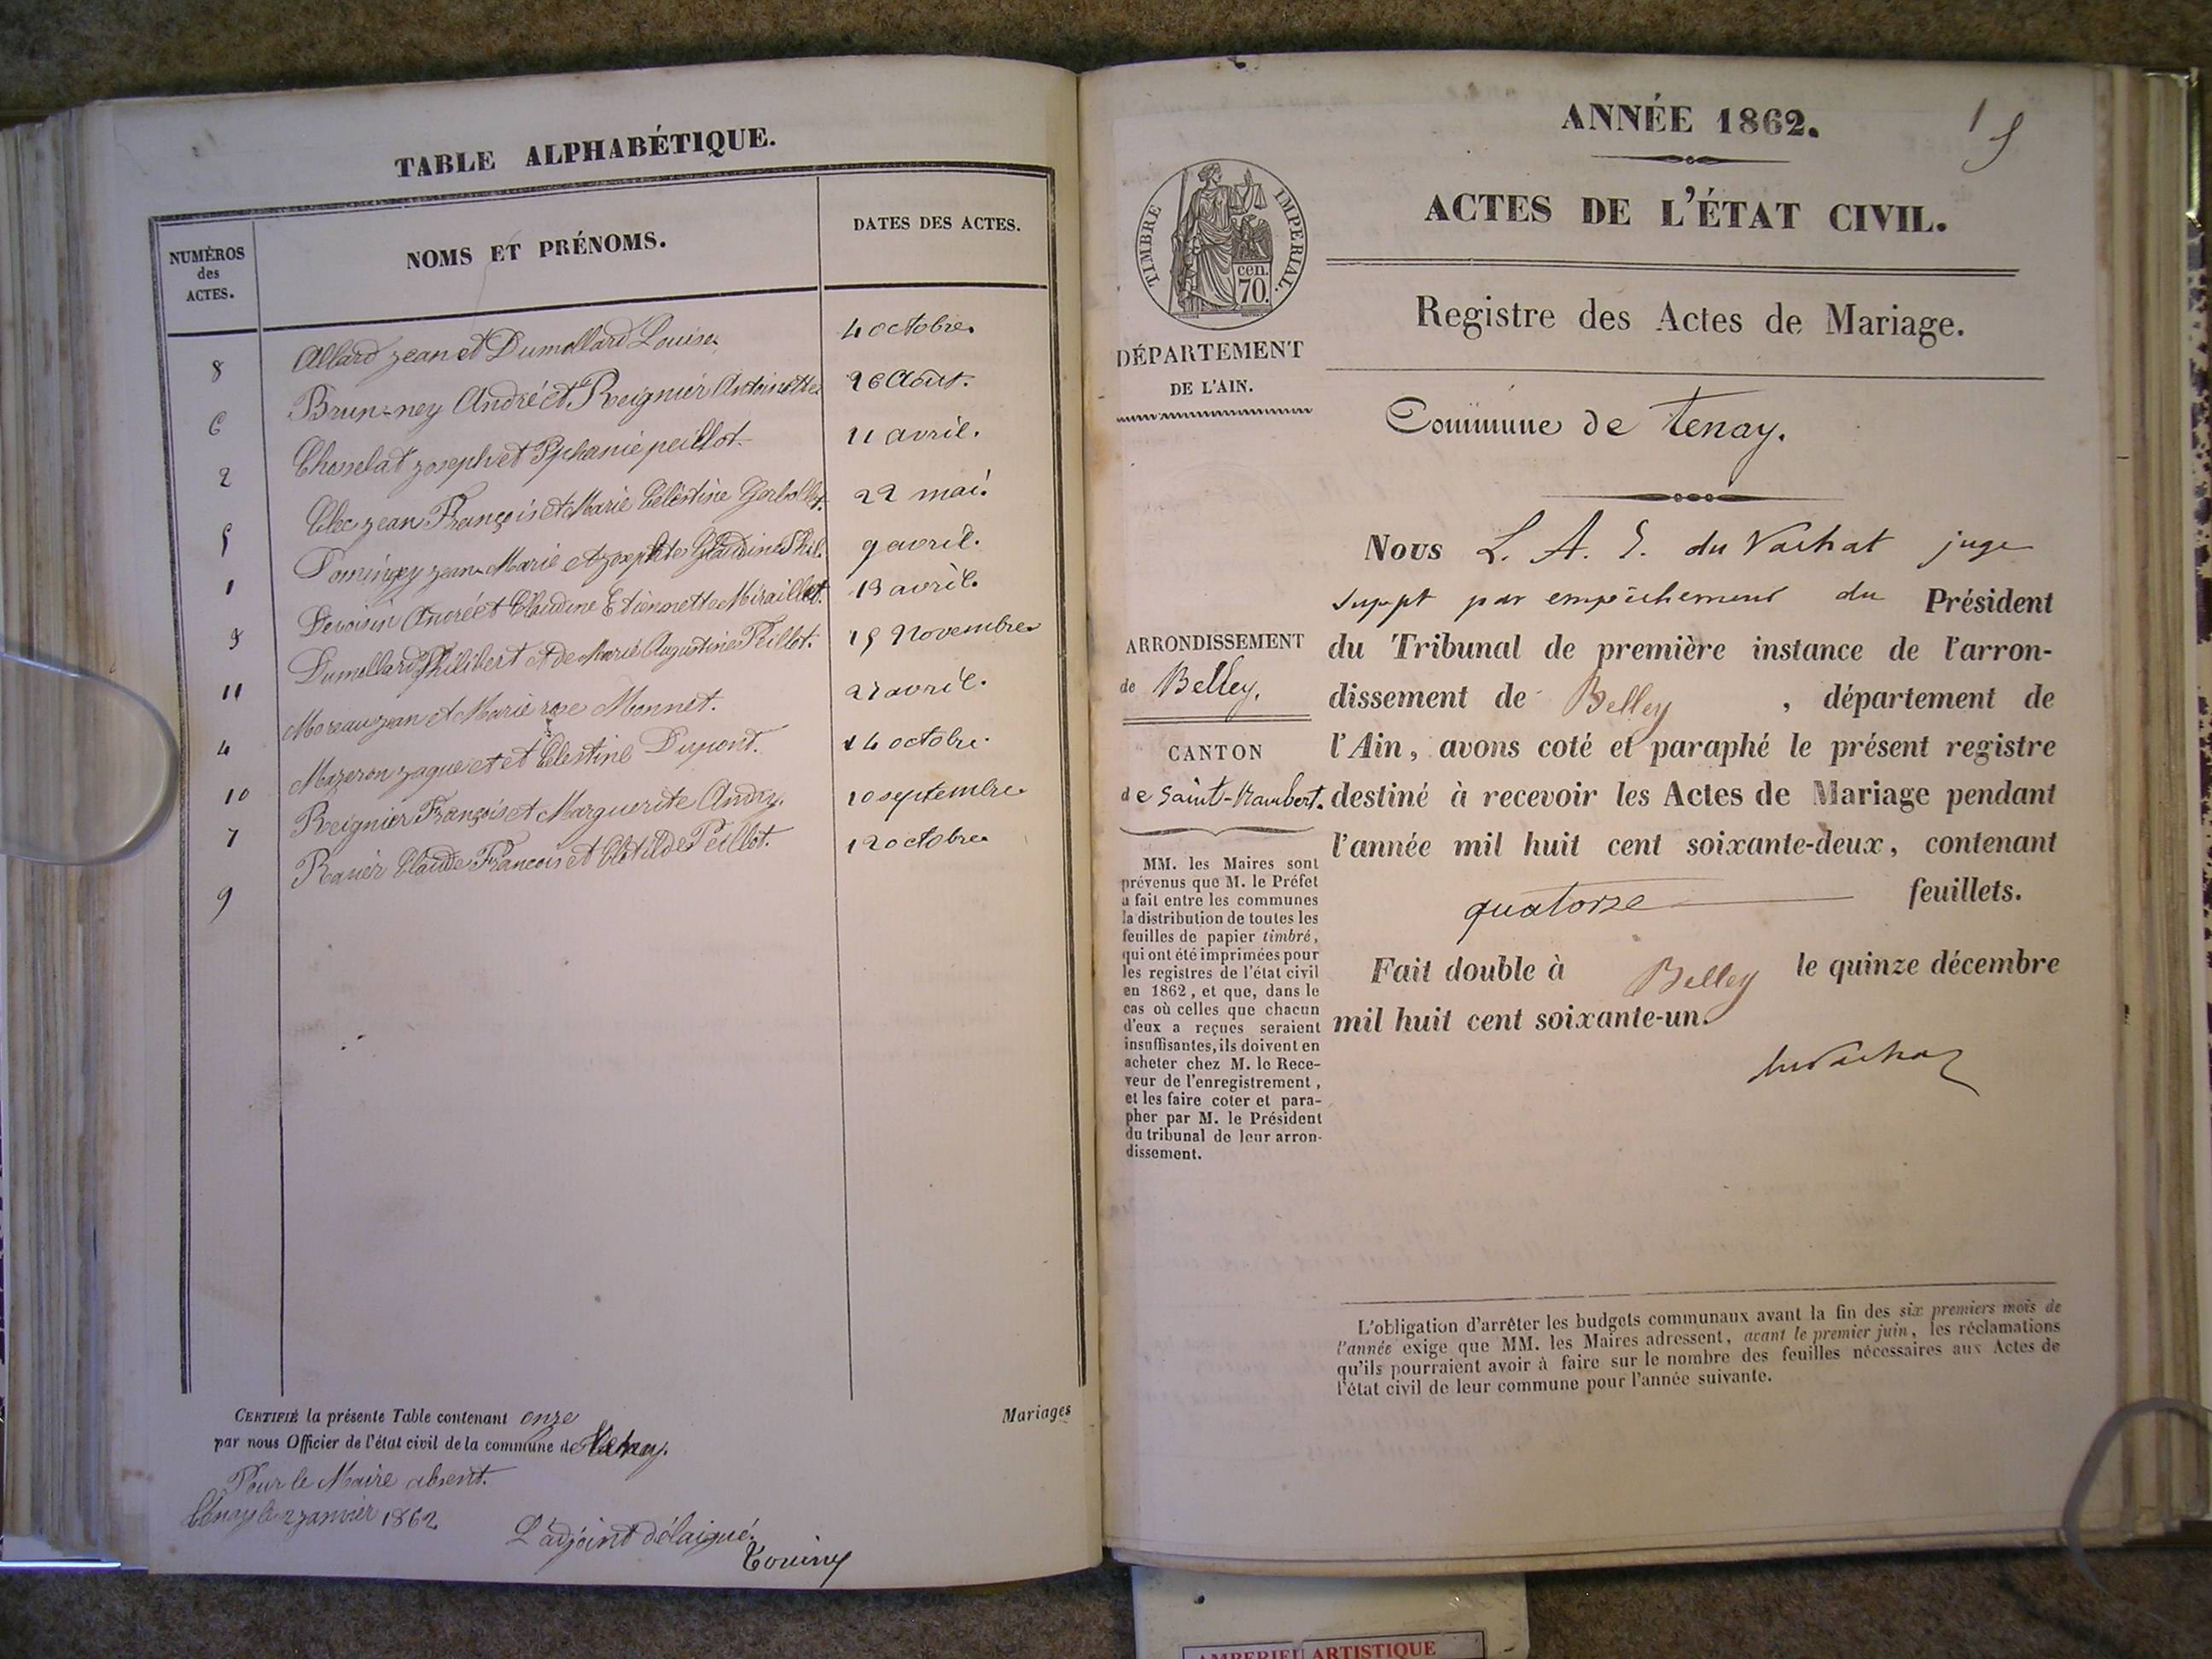 TABLE ALPHABÉTIQUE.
NUMÉROS des ACTES.
NOMS ET PRÉNOMS.
DATES DES ACTES.
8 Allard jean et Dumollard Louise 4 octobre.
6 Brun-ney André et Reignier Antoinette 26 Août.
2 joseph et peillot 11 avril.
5 jean François et Marie Célèstine 22 mai.
1 jean Marie et 9 avril.
3 Devoisin André et Claudine Etiennette Miraillet. 13 avril.
11 Dumollard Philibert et de Marie Augustine Peillot. 15 Novembre
4 Moreau jean et Marie rose Monnet. 27 avril.
10 Mazeron jaque et et Célestine Dupont. 14 octobre.
7 Reignier François et Marguerite 10 septembre
9 Claude Francois et Clotilde Peillot. 12 octobre
CERTIFIÉ la présente Table contenant onze Mariages
par nous Officier de l'état civil de la commune de
Pour le Maire absent.
le 2 janvier 1862
L'adjoint délaigué.
ANNÉE 1862.
ACTES DE L'ÉTAT CIVIL.
Registre des Actes de Mariage.
TIMBRE IMPERIAL.
cen.
70.
DÉPARTEMENT
DE L'AIN.
Commune de Tenay.
Nous L. A. E. du Vachat juge
suppt par empêchement du Président
du Tribunal de première instance de l'arron-
dissement de Belley , département de
l'Ain, avons coté et paraphé le présent registre
destiné à recevoir les Actes de Mariage pendant
l'année mil huit cent soixante-deux, contenant
quatorze feuillets.
Fait double à Belley le quinze décembre
mil huit cent soixante-un.
du Vachat
ARRONDISSEMENT
de Belley.
CANTON
de Saint-Rambert.
MM. les Maires sont
prévenus que M. le Préfet
a fait entre les communes
la distribution de toutes les
feuilles de papier timbré,
qui ont été imprimées pour
les registres de l'état civil
en 1862, et que, dans le
cas où celles que chacun
d'eux a reçues seraient
insuffisantes, ils doivent en
acheter chez M. le Rece-
veur de l'enregistrement,
et les faire coter et para-
pher par M. le Président
du tribunal de leur arron-
dissement.
L'obligation d'arrêter les budgets communaux avant la fin des six premiers mois de
l'année exige que MM. les Maires adressent, avant le premier juin, les réclamations
qu'ils pourraient avoir à faire sur le nombre des feuilles nécessaires aux Actes de
l'état civil de leur commune pour l'année suivante.
AMBERIEU ARTISTIQUE